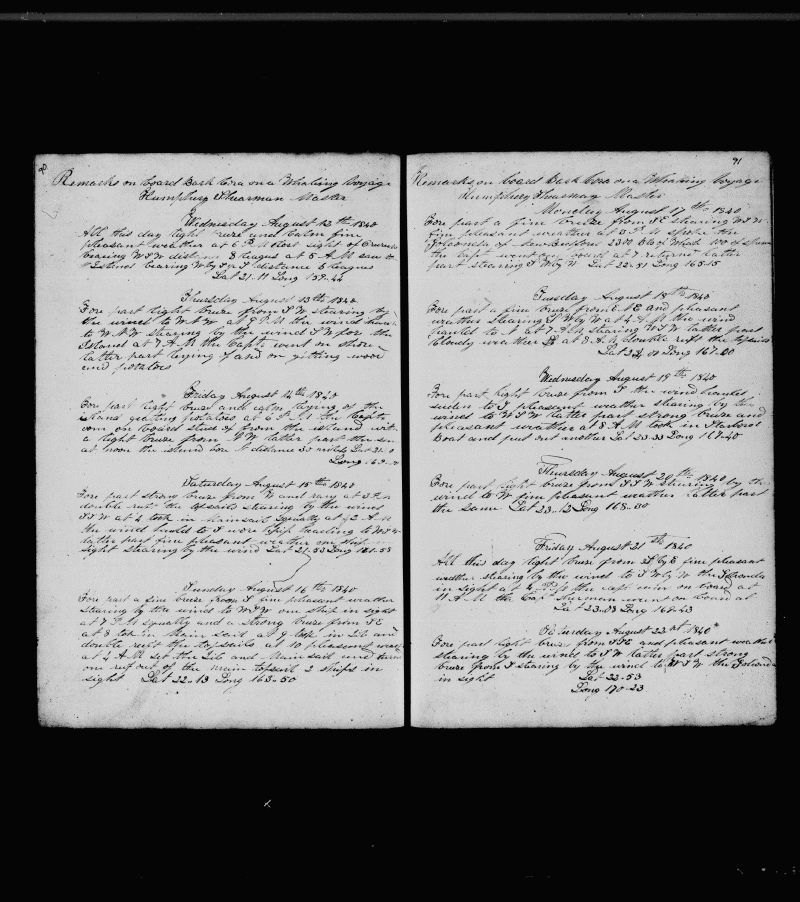 Remarks on board Bark Cora on a Whaling Voyage
Humphrey Shearman Master
Wednesday August 12th 1840
All this day light breze and Calm fine
pleasant weather at 6 P M lost sight of
bearing W S W distance 8 leagus at 5 A M saw
Island bearing W by S distance 8 leagues
Lat 21-11 Long 159-44
Thursday August 13th 1840
Fore part light breze from S W stearing by
the wind to W N W at 8 P M the wind
to W N W stearing by the wind S W for the
Island at 7 A M the Capt went on shore
latter part laying of and on gitting wood
and potatoes
Friday August 14th 1840
Fore part light breze and calm laying of the
Island geating potatoes at 6 P M the Capt
com on board stud of from the island with
a light breze from N W latter part the
at noon the island bore distance 35 miles Lat 21-0
Long 160-
Saturday August 15th 1840
Fore part strong breze from W and rany at 3 P M
double reft the topsails stearing by the wind
S S W at 4 took in Mainsail Squally at 2 A M
the wind hauled to S wore Ship heading to W S W
latter part fine pleasant weather one ship in
sight stearing by the wind Lat 21-53 Long 161-58
Sunday August 16th 1840
Fore part a fine breze from S fine pleasant weather
stearing by the wind to W S W one ship in sight
at 7 P M squally and a strong breze from S E
at 8 took in Main sail at 9 took in Jib and
double reeft the topsails at 10 pleasant
at 4 A M Set the Jib and Main sail and turn
one ref out of the main topsail 2 ships in
sight Lat 22-13 Long 163-50
91
Remarks on board Bark Cora on a Whaling Voyage
Humphrey Shearman Master
Monday August 17th 1840
Fore part a fine breze from S E stearing W S W
fine pleasant weather at 3 P M spoke the
Golconda of New Bedford 2300 blags Whale 100 of sperm
the Capt went on board at 7 returned latter
part stearing S W by W Lat 22-51 Long 165-15
Tuesday August 18th 1840
Fore part a fine breze from E N E and pleasant
weather stearing S W by W at 4 P M the wind
hauled to N at 7 P M stearing W S W latter part
cloudy weather at 8 A M double reft the topsails
Long 167-00
Wednesday August 19th 1840
Fore part light breze from N the wind hauled
suden to S pleasant weather stearing by the
wind to W S W latter part strong breze and
pleasant weather at 8 A M took in Starbord
boat and put out another Lat 23-33 Long 167-40
Thursday August 20th 1840
Fore part light breze from S S W stearing by the
wind to W fine pleasant weather latter part
the Same Lat 23-12 Long 168-00
Friday August 21st 1840
All this day light breze from S by E fine pleasant
weather stearing by the wind to S W by W the Golconda
in sight at 4 P M the capt com on board at
A M the Capt Shearman went on board at
Lat 23-03 Long 169-43
Saturday August 22nd 1840
Fore part light breze from S S E and pleasant weather
stearing by the wind to S W latter part strong
breze from S stearing by the wind to W S W the Golconda
in sight Lat 22-53
Long 170-23